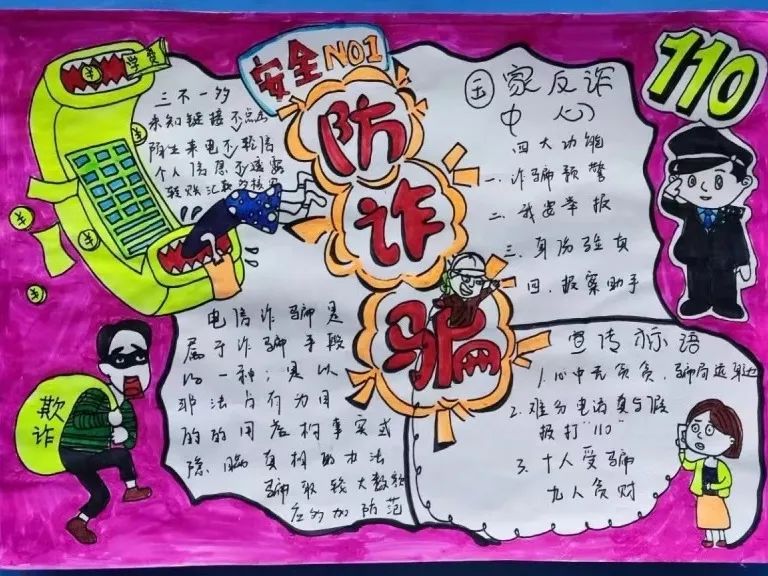 安全NO1
防
诈
骗
110
学费
三不一多
未知链接不点击
陌生来电不轻信
个人信息不透露
转账汇款多核实
国家反诈
中心
四大功能
一、诈骗预警
二、我要举报
三、身份验真
四、报案助手
电信诈骗是
属于诈骗手段
的一种；是以
非法占有为目
的的用虚构事实或
隐瞒真相的办法
骗取较大数额
应多加防范
宣传标语
1.心中无贪念，骗局远身边
2.难分电话真与假
报打"110"
3.十人受骗
九人贪财
欺诈